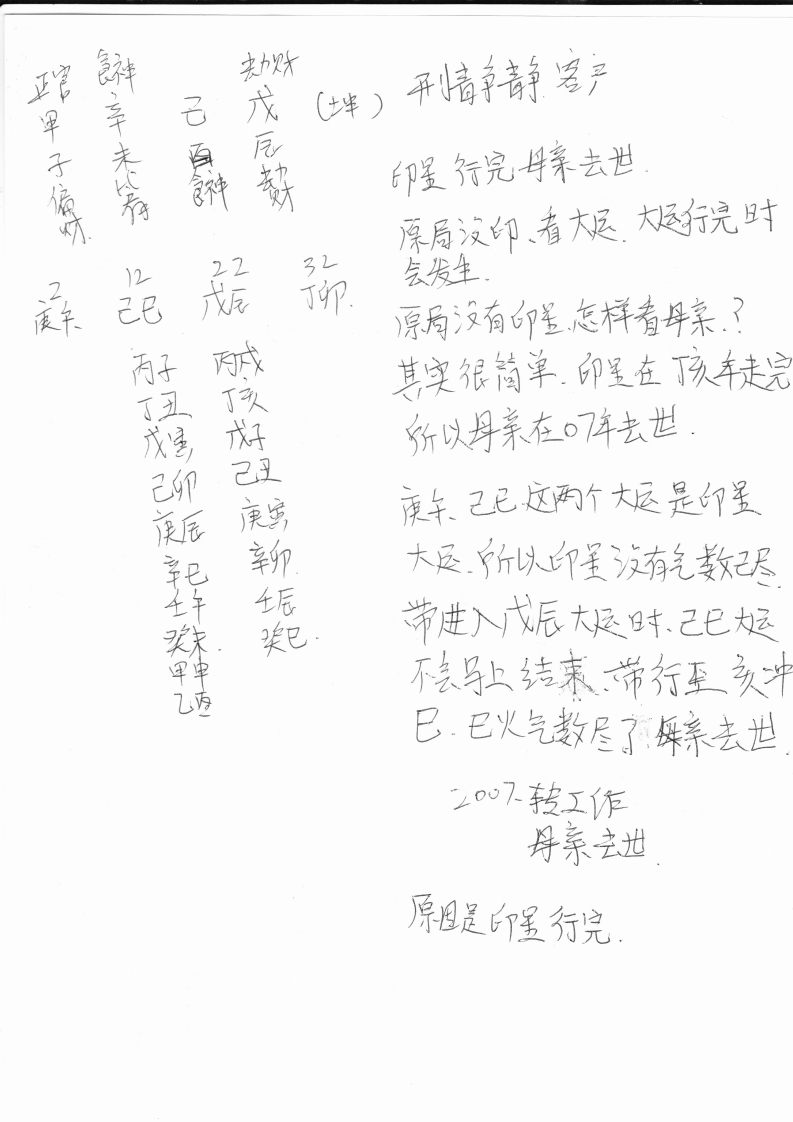 正官 食神 劫财
甲 辛 己 戊 (坤)
子 未 酉 辰
偏财 比肩 食神 劫财
2 12 22 32
庚午 己巳 戊辰 丁卯.
丙子 丙戌
丁丑 丁亥
戊寅 戊子
己卯 己丑
庚辰 庚寅
辛巳 辛卯
壬午 壬辰
癸未. 癸巳.
甲申
乙酉
客户
印星行完母亲去世.
原局没印、看大运. 大运行完时
会发生.
原局没有印星.怎样看母亲.?
其实很简单. 印星在丁亥年走完
所以母亲在07年去世.
庚午、己巳.这两个大运是印星
大运. 所以印星没有气数已尽.
带进入戊辰大运时、己巳大运
不会马上结束、带行至亥冲
巳. 巳火气数尽了.母亲去世.
2007-转工作
母亲去世.
原因是印星行完.